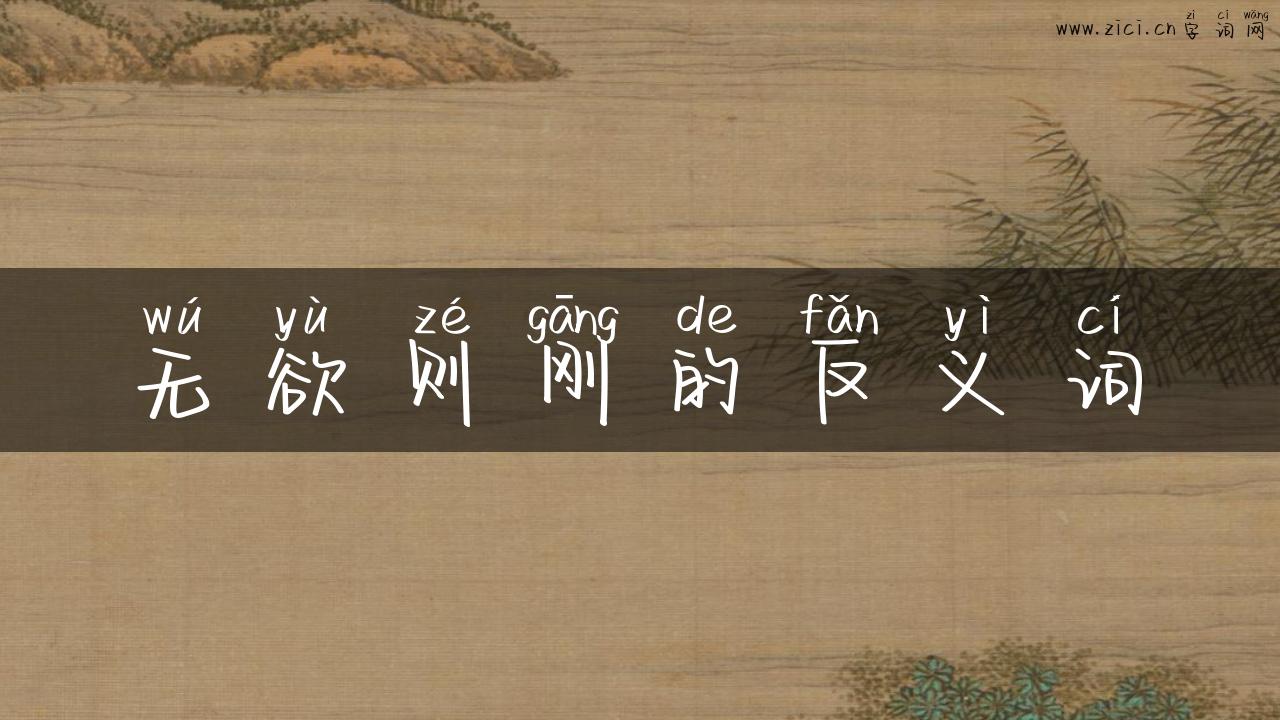 zì cí wǎng
www.zici.cn 字词网
wú yù zé gāng de fǎn yì cí
无欲则刚的反义词